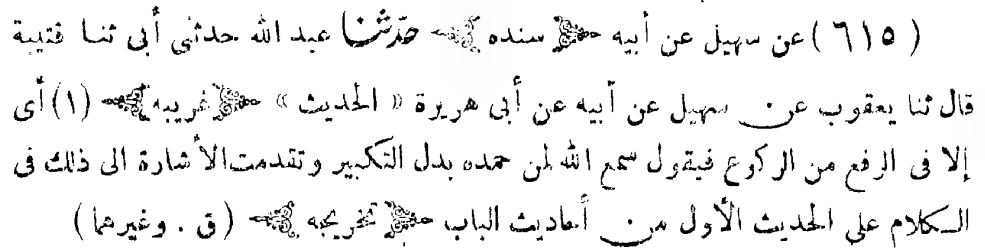 (٦١٥) عن سهيل عن أبيه ﴿ سنده ﴾ حدّثنا عبد الله حدثنى أبى ثنا قتيبة
قال ثنا يعقوب عن سهيل عن أبيه عن أبى هريرة « الحديث » ﴿ غريبه ﴾ (١) أى
إلا فى الرفع من الركوع فيقول سمع الله لمن حمده بدل التكبير وتقدمت الأشارة الى ذلك فى
الكلام على الحديث الأول من أحاديث الباب ﴿ تخريجه ﴾ (ق . وغيرهما)